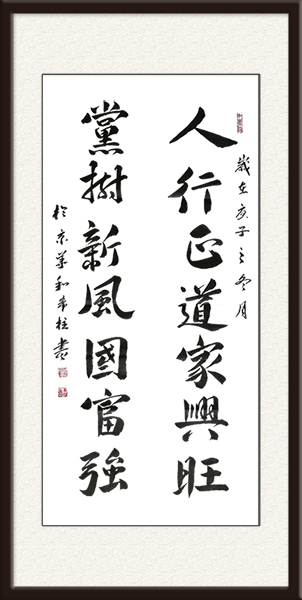 人行正道家興旺
黨樹新風國富強
歲在庚子之冬月
於京華和希柱書